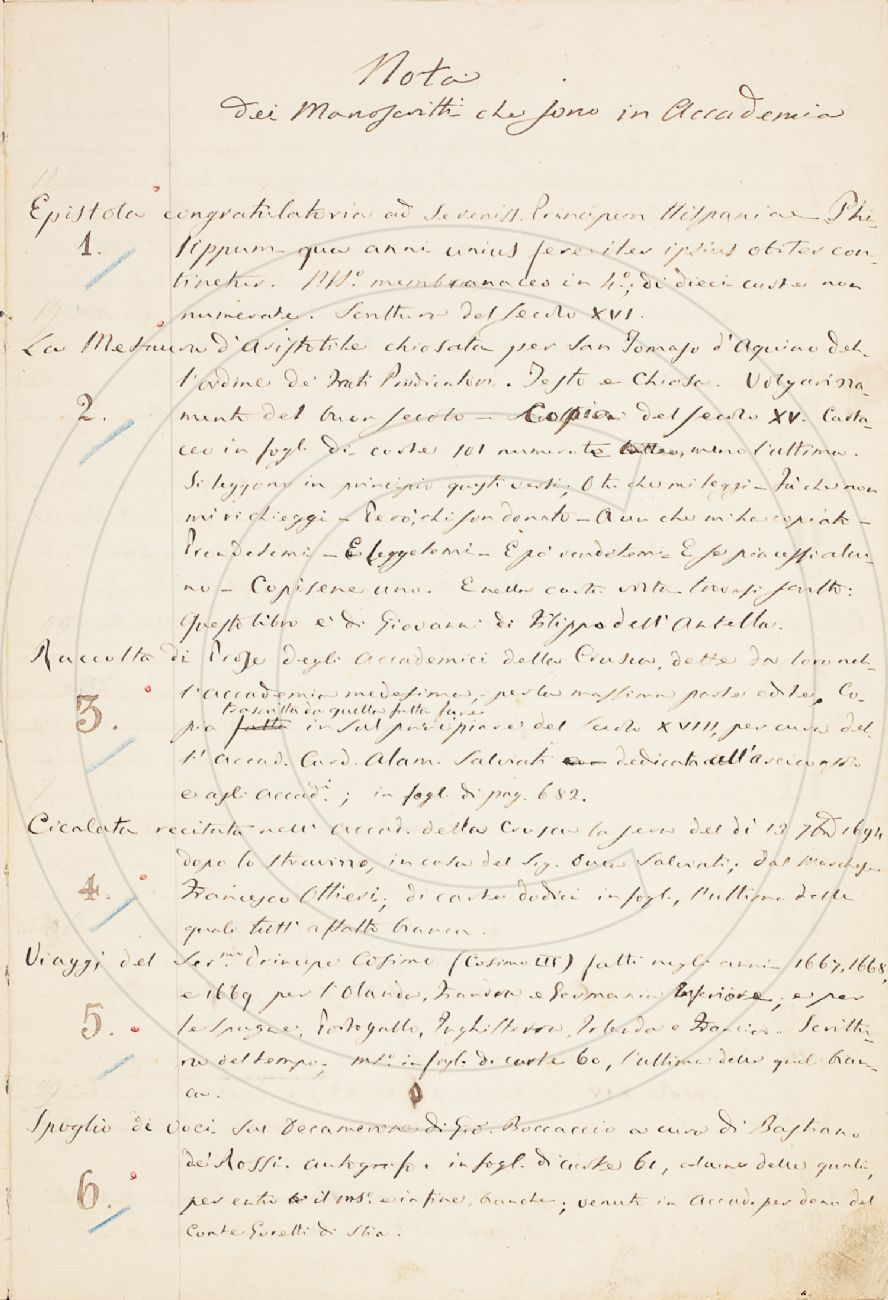 Nota
dei Manoscritti che sono in Accademia
Epistola congratulatoria ad Sereniss. Principem Hispaniae Phi-
1. lippum qua anni unius fere iter ipsius obiter con-
tinetur. MS.º membranaceo in 4.º; di dieci carte non
numerate. Scrittura del secolo XVI.
La Metaura d'Aristotile chiosata per San Tomaso d'Aquino del-
l'ordine de' Frati Predicatori. Testo e Chiosa. Volgarizza-
2. mento del buon secolo — Copia del secolo XV. Carta-
ceo in fogl. di carte 101 numerate tutte, meno l'ultima.
Si leggono in principio questi versi; O tu che mi leggi — Fa' che non
mi richieggi — Però, chi son donato — A un che m'ha copiato —
Prendetemi — E leggetemi — E po' rendetemi — E se piacessi alcu-
no — Copisene uno. E nella carta volta trovasi scritto:
Questo libro è di Giovanni di Filippo dell'Antella.
Raccolta di Prose degli Accademici della Crusca, dette da loro nel-
l'Accademia medesima, per la massima parte edite. Co-
trascritta da quella fatta fare
3. pia fatta in sul principiare del secolo XVIII, per cura del-
l'Accad. Card. Alam. Salviati dedicata all'Arciconsolo
e agli Accad.i; in fogl. di pag. 682.
Cicalata recitata nell'Accad. della Crusca la sera del dì 13 7bre 1694
dopo lo stravizzo, in casa del Sig. Duca Salviati; dal Marchese
4. Francesco Ottieri; di carte dodici in fogl., l'ultima delle
quali tutt'affatto bianca.
Viaggi del Ser.mo Principe Cosimo (Cosimo III) fatti negli anni 1667, 1668,
e 1669 per l'Olanda, Fiandra e Germania Inferiore; e per
5. le Spagne, Portogallo, Inghilterra, Irlanda e Francia. Scrittu-
ra del tempo; ms.º in fogl. di carte 60, l'ultima delle quali bian-
ca.
Spoglio di voci sul Decamerone di Gio. Boccaccio a cura di Bastiano
de' Rossi. autografo. in fogl. di carte 61, alcune delle quali,
6. per entro il ms.º e in fine, bianche; venute in Accad. per dono del
Conte Goretti di Stia.